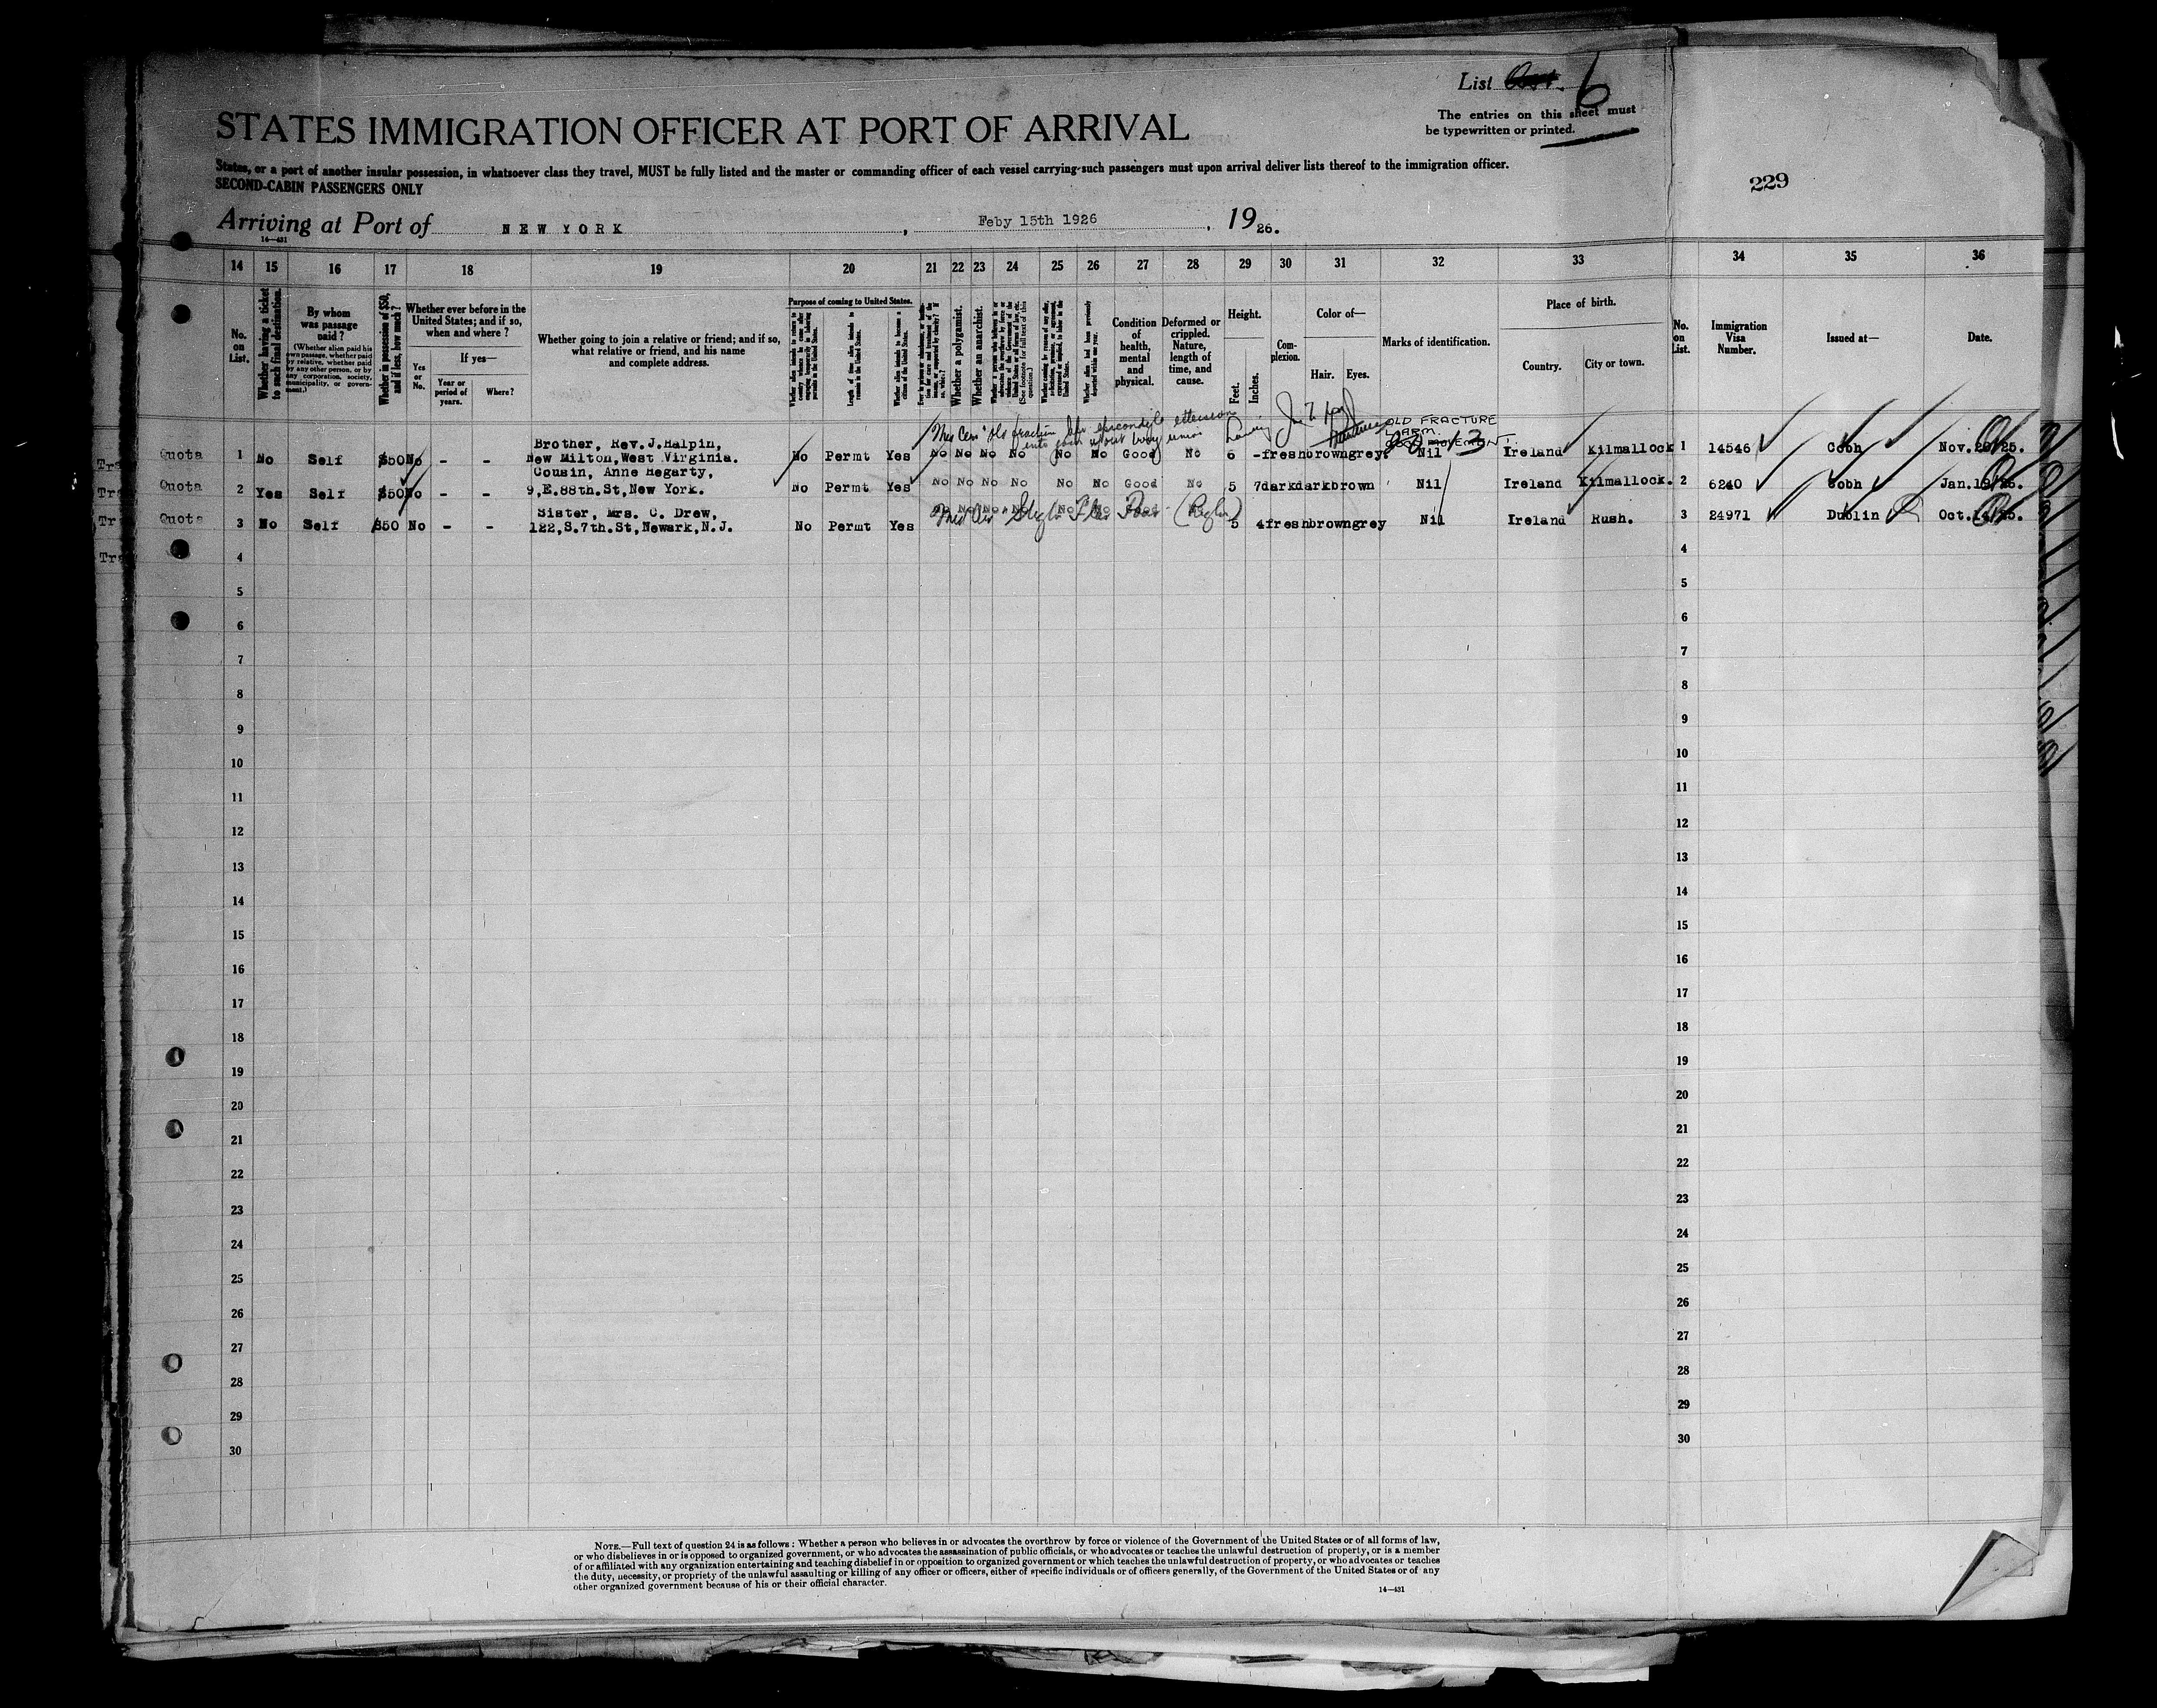 List 6
The entries on this sheet must
be typewritten or printed.
STATES IMMIGRATION OFFICER AT PORT OF ARRIVAL
States, or a port of another insular possession, in whatsoever class they travel, MUST be fully listed and the master or commanding officer of each vessel carrying such passengers must upon arrival deliver lists thereof to the immigration officer.
SECOND-CABIN PASSENGERS ONLY
229
Arriving at Port of NEW YORK, Feby 15th 1926, 1926.
14—431
14 15 16 17 18 19 20 21 22 23 24 25 26 27 28 29 30 31 32 33 34 35 36
No. on List.
Whether having a ticket to such final destination.
By whom was passage paid?
(Whether alien paid his own passage, whether paid by relative, whether paid by any other person, or by any corporation, society, municipality, or government.)
Whether in possession of $50, and if less, how much?
Whether ever before in the United States; and if so, when and where?
Yes or No.
If yes—
Year or period of years.
Where?
Whether going to join a relative or friend; and if so, what relative or friend, and his name and complete address.
Purpose of coming to United States.
Length of time alien intends to remain in the United States.
Whether alien intends to become a citizen of the United States.
Whether a polygamist.
Whether an anarchist.
Condition of health, mental and physical.
Deformed or crippled. Nature, length of time, and cause.
Height.
Feet.
Inches.
Complexion.
Color of—
Hair.
Eyes.
Marks of identification.
Place of birth.
Country.
City or town.
No. on List.
Immigration Visa Number.
Issued at—
Date.
OLD FRACTURE
L. ARM.
Brother, Rev.J.Halpin,
Quota 1 No Self $50 No - - New Milton,West Virginia. No Permt Yes No No No No No No Good No 6 - fresh brown grey. Nil Ireland Kilmallock 1 14546 Cobh Nov.20/25.
Cousin, Anne Hegarty,
Quota 2 Yes Self $50 No - - 9,E.88th.St,New York. No Permt Yes No No No No No No Good No 5 7 dark dark brown Nil Ireland Kilmallock. 2 6240 Cobh Jan.
Sister, Mrs. C. Drew,
Quota 3 No Self $50 No - - 122,S.7th.St,Newark,N.J. No Permt Yes No No No No No No 5 4 fresh brown grey Nil Ireland Rush. 3 24971 Dublin Oct.14/25.
4 4
5 5
6 6
7 7
8 8
9 9
10 10
11 11
12 12
13 13
14 14
15 15
16 16
17 17
18 18
19 19
20 20
21 21
22 22
23 23
24 24
25 25
26 26
27 27
28 28
29 29
30 30
NOTE.—Full text of question 24 is as follows: Whether a person who believes in or advocates the overthrow by force or violence of the Government of the United States or of all forms of law,
or who disbelieves in or is opposed to organized government, or who advocates the assassination of public officials, or who advocates or teaches the unlawful destruction of property, or is a member
of or affiliated with any organization entertaining and teaching disbelief in or opposition to organized government or which teaches the unlawful destruction of property, or who advocates or teaches
the duty, necessity, or propriety of the unlawful assaulting or killing of any officer or officers, either of specific individuals or of officers generally, of the Government of the United States or of any
other organized government because of his or their official character.
14—431